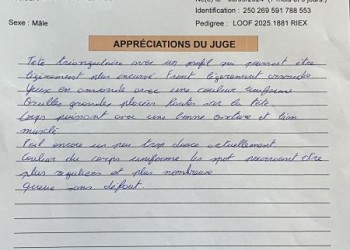 Sexe : Mâle
Identification : 250 269 591 788 553
Pedigree : LOOF 2025.1881 RIEX
APPRÉCIATIONS DU JUGE
Tête triangulaire avec un profil qui pourrait être
légèrement plus incurvé. Front légèrement arrondie
Yeux en amande avec une couleur uniforme
Oreilles grandes placées hautes sur la tête
Corps puissant avec une bonne ossature et bien
musclé
Poil encore un peu trop doux actuellement
Couleur du corps uniforme les spot pourraient être
plus réguliers et plus nombreux
Queue sans défaut.